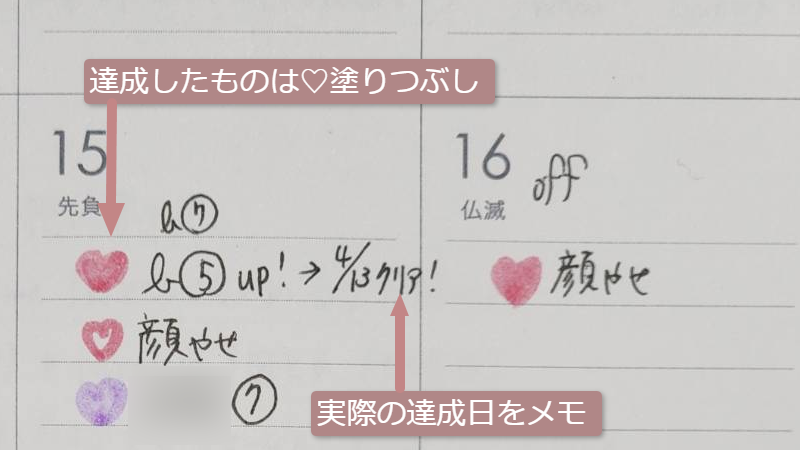 達成したものは♡塗りつぶし
15
先負
b⑦
b⑤up!→4/13クリア!
顔やせ
⑦
16
off
仏滅
顔やせ
実際の達成日をメモ